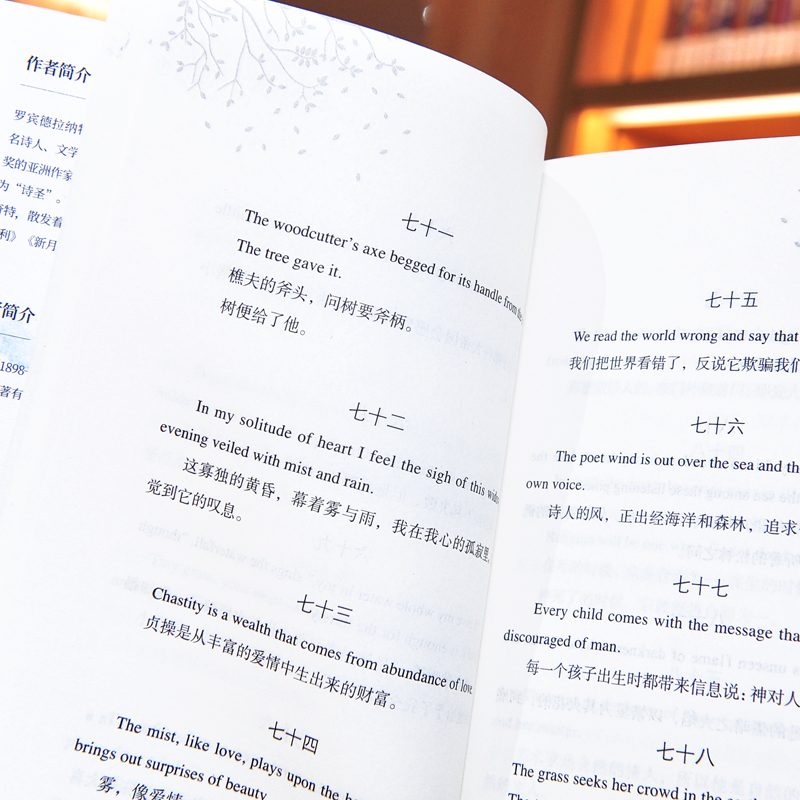 作者简介
罗宾德拉纳特
名诗人、文学
奖的亚洲作家
为“诗圣”。
奇特，散发着
利》《新月
者简介
1898-
著有
七十一
The woodcutter’s axe begged for its handle from the
The tree gave it.
樵夫的斧头，问树要斧柄。
树便给了他。
七十二
In my solitude of heart I feel the sigh of this widow
evening veiled with mist and rain.
这寡独的黄昏，幕着雾与雨，我在我心的孤寂里，
觉到它的叹息。
七十三
Chastity is a wealth that comes from abundance of love.
贞操是从丰富的爱情中生出来的财富。
七十四
The mist, like love, plays upon the
brings out surprises of beauty
雾，像爱情
七十五
We read the world wrong and say that
我们把世界看错了，反说它欺骗我们
七十六
The poet wind is out over the sea and the
own voice.
诗人的风，正出经海洋和森林，追求
七十七
Every child comes with the message that
discouraged of man.
每一个孩子出生时都带来信息说：神对人
七十八
The grass seeks her crowd in the